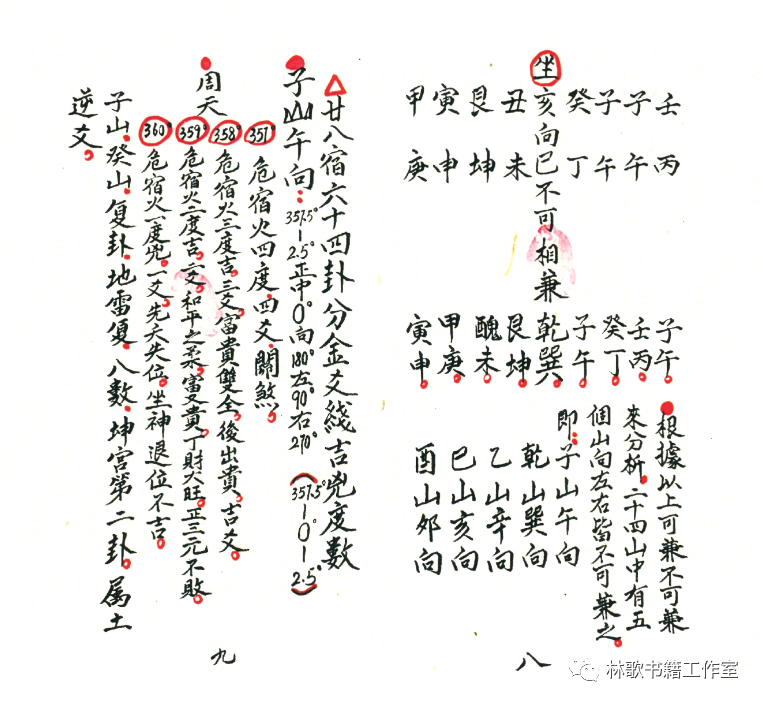 壬　丙
子　午
子　午
癸　丁
坐亥向巳不可相兼
丑　未
艮　坤
寅　申
甲　庚
子午。
壬丙。
癸丁。
子午。
乾巽。
艮坤。
醜未。
甲庚。
寅申。
根據以上可兼不可兼
來分析。二十四山中有五
個山向左右皆不可兼之。
即：子山午向
乾山巽向
乙山辛向
巳山亥向
酉山夘向
八
△廿八宿六十四卦分金爻綫吉兇度數
子山午向：357.5°—2.5°正中0°向180°左90°右270°（357.5°—0°—2.5°）
周天
357° 危宿火四度。四爻。關煞。
358° 危宿火三度吉。三爻富貴雙全。後出貴。吉爻。
359° 危宿火二度吉。二爻。和平之柔。富又貴。丁財大旺。正三元不敗。
360° 危宿火一度兇。一爻。先夭失位。坐神退位不吉。
子山。癸山。复卦。地雷复。八數。坤宮第二卦。屬土
逆爻。
九
林歌书籍工作室